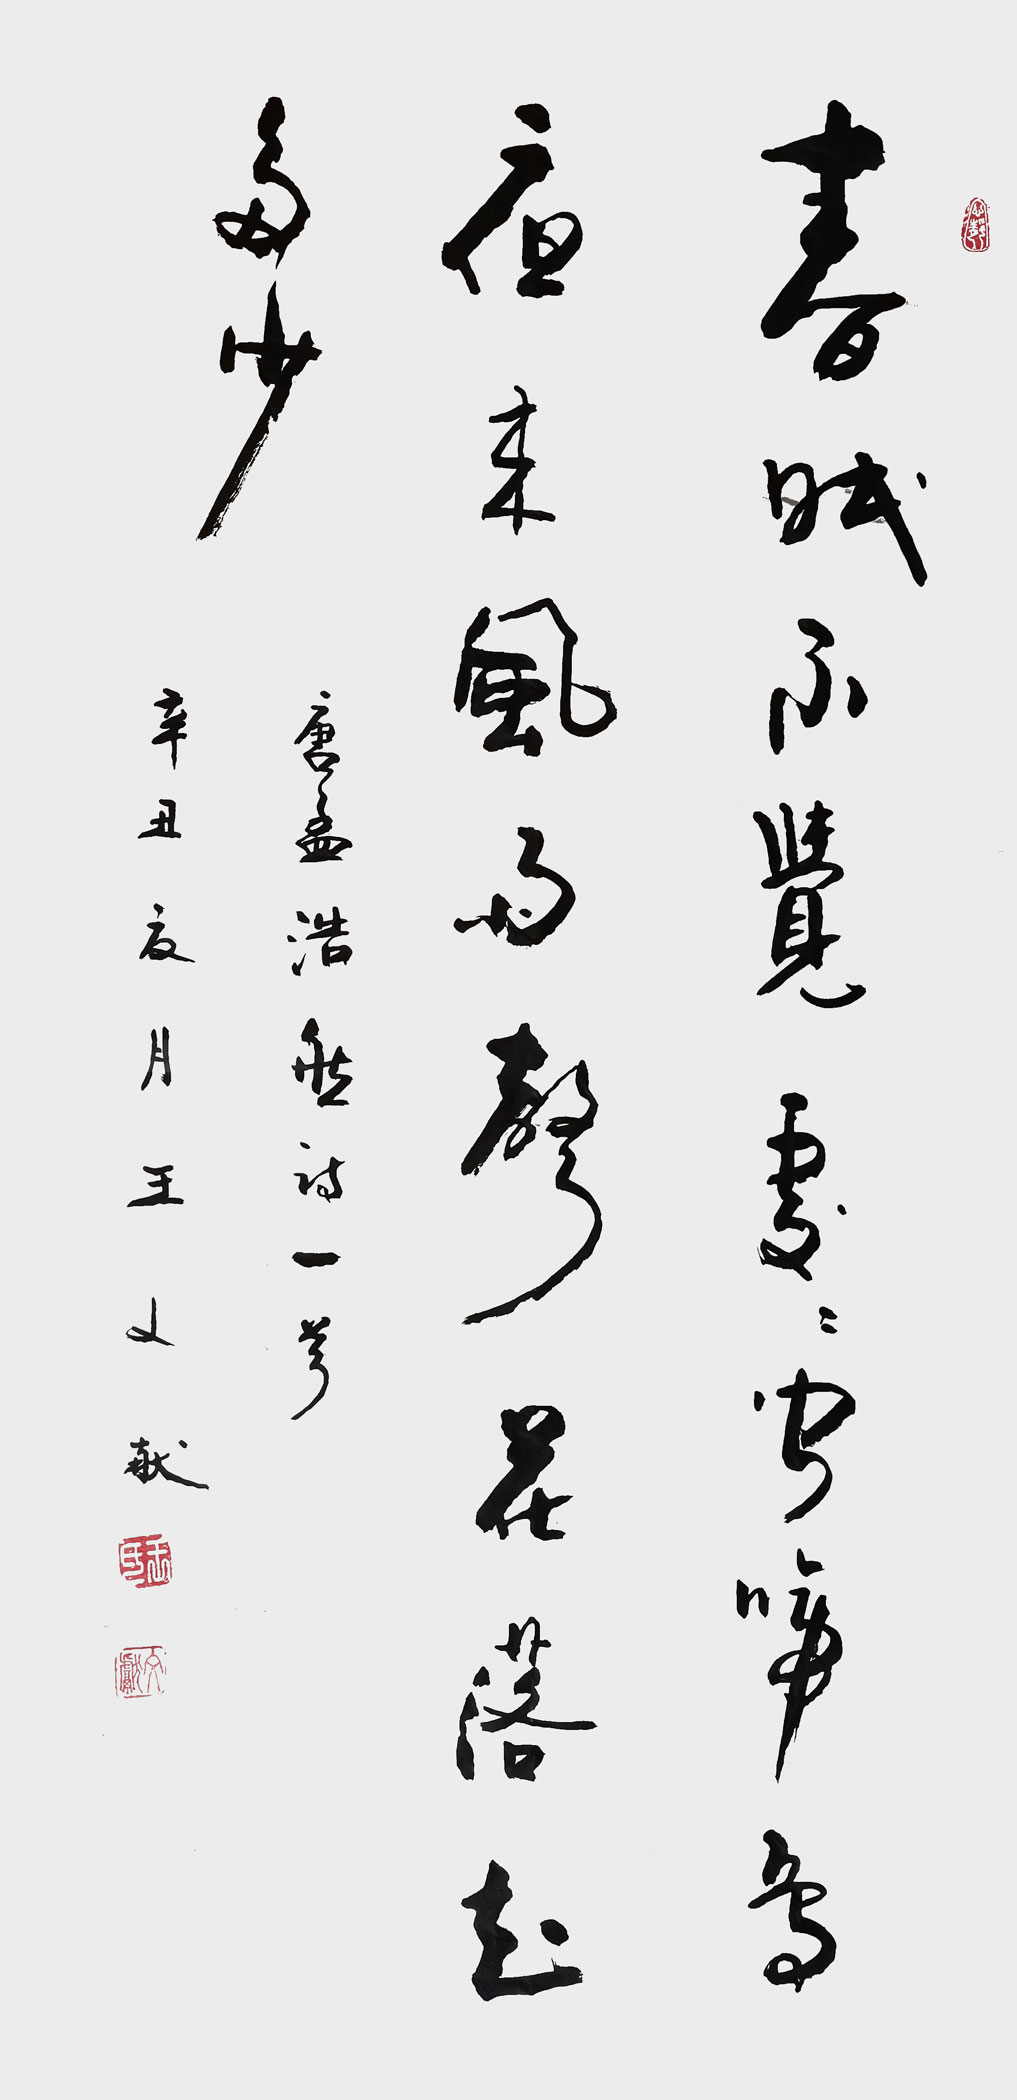 春眠不覺處〻聞啼鳥
夜来風雨聲花落知
多少
唐孟浩然詩一首
辛丑夏月王文献
文獻